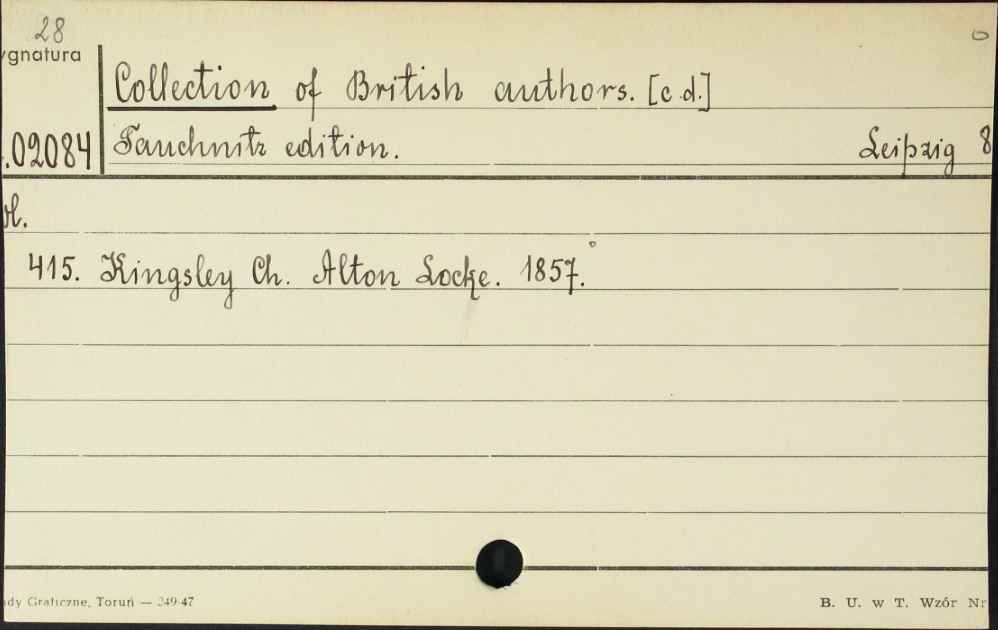 28
ygnatura
Collection of British authors. [c.d.]
.02084 Tauchnitz edition. Leipzig 8
ol.
415. Kingsley Ch. Alton Locke. 1857.°
ady Graficzne, Toruń — 249-47 B. U. w T. Wzór Nr